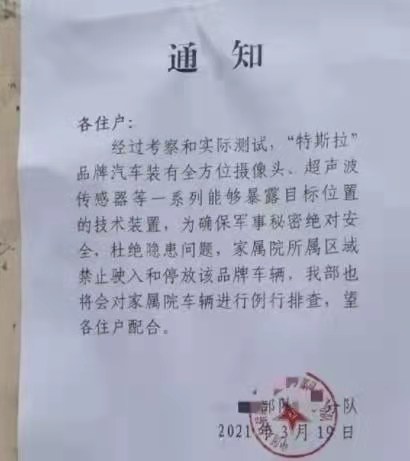 通知
各住户：
经过考察和实际测试，“特斯拉”
品牌汽车装有全方位摄像头、超声波
传感器等一系列能够暴露目标位置
的技术装置，为确保军事秘密绝对安
全，杜绝隐患问题，家属院所属区域
禁止驶入和停放该品牌车辆，我部也
将会对家属院车辆进行例行排查，望
各住户配合。
部队 分队
2021年3月19日